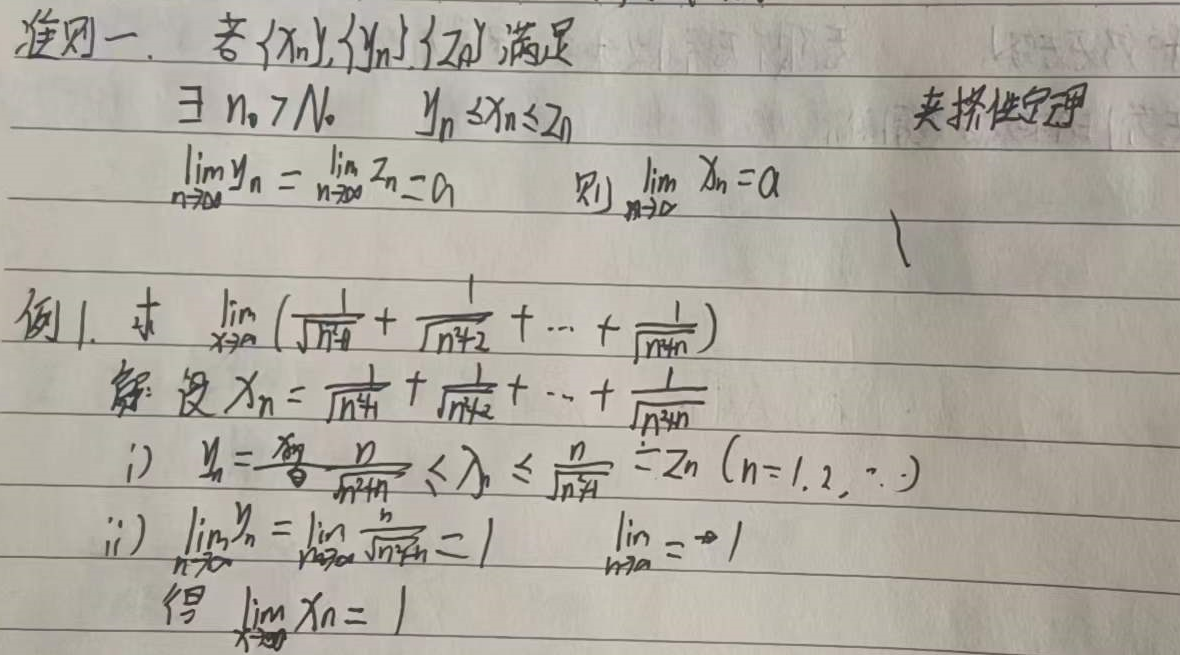 准则一. 若{xn},{yn},{zn}满足
∃ n₀ > N₀ yn ≤ xn ≤ zn 夹挤性定理
lim n→∞ yn = lim n→∞ zn = a 则 lim n→∞ xn = a
例1. 求 lim x→∞ (1/√(n²+1) + 1/√(n²+2) + ⋯ + 1/√(n²+n))
解: 设 xn = 1/√(n²+1) + 1/√(n²+2) + ⋯ + 1/√(n²+n)
i) yn = n/√(n²+n) ≤ xn ≤ n/√(n²+1) = zn (n=1.2, ⋯)
ii) lim n→∞ yn = lim n→∞ n/√(n²+n) = 1 lim n→∞ = 1
得 lim x→∞ xn = 1